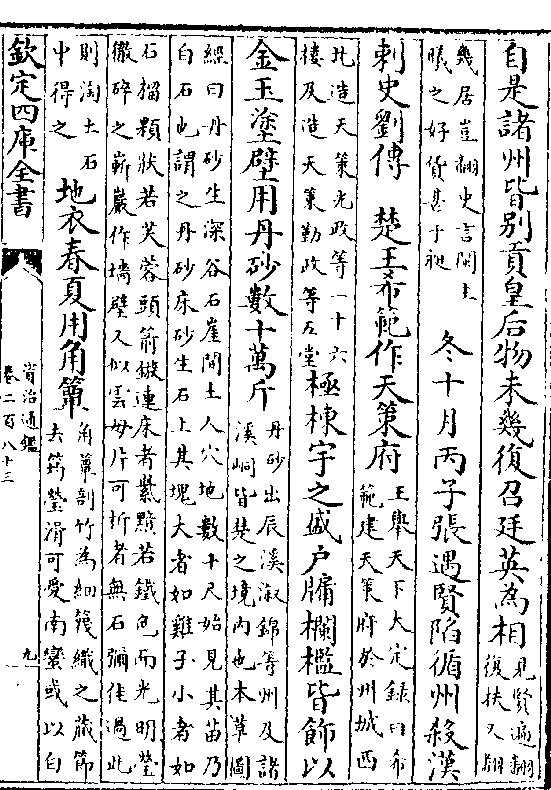 自是諸州皆别貢皇后物未幾復召廷英為相見賢遍翻復扶又翻
幾居豈翻史言閩主曦之好貨甚于昶　冬十月丙子張遇賢陷循州殺漢
刺史劉傳　楚王希範作天策府王舉天下大定録曰希範建天策府於州城西
北造天策光政等一十六樓及造天策勤政等五堂極棟宇之盛户牖欄檻皆飾以
金玉塗壁用丹砂數十萬斤丹砂出辰溪溆錦等州及諸溪峒皆楚之境内也本草圖
經曰丹砂生深谷石崖間土人穴地數十尺始見其苗乃白石也謂之丹砂床砂生石上其塊大者如雞子小者如
石榴顆狀若芙蓉頭箭鏃連床者紫黯若鐵色而光明瑩徹碎之嶄巖作墻壁又似雲母片可析者無石彌佳過此
則淘土石中得之　地衣春夏用角簟角簟剖竹為細篾織之藏節去筠瑩滑可愛南蠻或以白
欽定四庫全書
資治通鑑
卷二百八十三
九